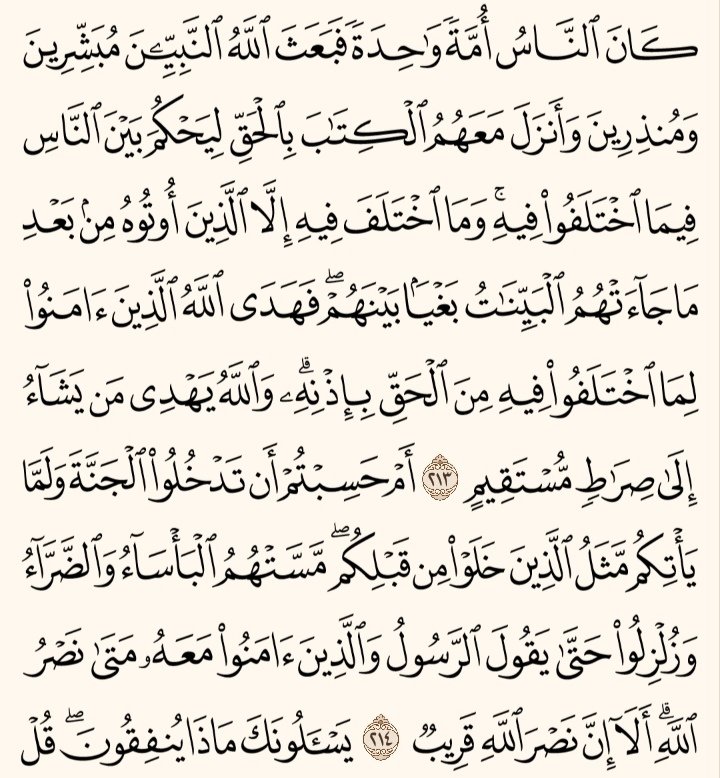 كَانَ ٱلنَّاسُ أُمَّةٗ وَٰحِدَةٗ فَبَعَثَ ٱللَّهُ ٱلنَّبِيِّـۧنَ مُبَشِّرِينَ
وَمُنذِرِينَ وَأَنزَلَ مَعَهُمُ ٱلۡكِتَٰبَ بِٱلۡحَقِّ لِيَحۡكُمَ بَيۡنَ ٱلنَّاسِ
فِيمَا ٱخۡتَلَفُواْ فِيهِۚ وَمَا ٱخۡتَلَفَ فِيهِ إِلَّا ٱلَّذِينَ أُوتُوهُ مِنۢ بَعۡدِ
مَا جَآءَتۡهُمُ ٱلۡبَيِّنَٰتُ بَغۡيَۢا بَيۡنَهُمۡۖ فَهَدَى ٱللَّهُ ٱلَّذِينَ ءَامَنُواْ
لِمَا ٱخۡتَلَفُواْ فِيهِ مِنَ ٱلۡحَقِّ بِإِذۡنِهِۦۗ وَٱللَّهُ يَهۡدِي مَن يَشَآءُ
إِلَىٰ صِرَٰطٖ مُّسۡتَقِيمٍ ٢١٣ أَمۡ حَسِبۡتُمۡ أَن تَدۡخُلُواْ ٱلۡجَنَّةَ وَلَمَّا
يَأۡتِكُم مَّثَلُ ٱلَّذِينَ خَلَوۡاْ مِن قَبۡلِكُمۖ مَّسَّتۡهُمُ ٱلۡبَأۡسَآءُ وَٱلضَّرَّآءُ
وَزُلۡزِلُواْ حَتَّىٰ يَقُولَ ٱلرَّسُولُ وَٱلَّذِينَ ءَامَنُواْ مَعَهُۥ مَتَىٰ نَصۡرُ
ٱللَّهِۗ أَلَآ إِنَّ نَصۡرَ ٱللَّهِ قَرِيبٞ ٢١٤ يَسۡـَٔلُونَكَ مَاذَا يُنفِقُونَۖ قُلۡ